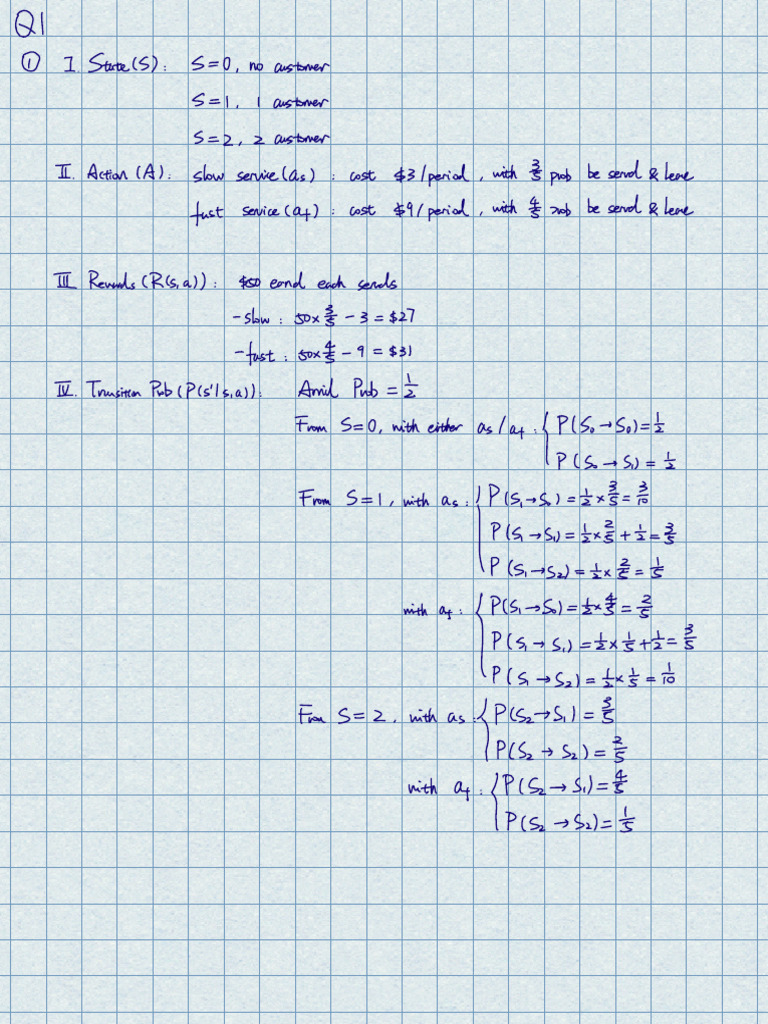 Q1
① I. State(S): S=0, no customer
S=1, 1 customer
S=2, 2 customer
II. Action (A): slow service(as): cost $3/period, with 3/5 prob be served & leave
fast service(af): cost $9/period, with 4/5 prob be served & leave
III. Rewards (R(s,a)): $50 earned each
- slow: 50×3/5 - 3 = $27
- fast: 50×4/5 - 9 = $31
IV. Transition Prob (P(s'|s,a)): Arrival Prob = 1/2
From S=0, with either as/af: { P(S0→S0)=1/2
P(S0→S1)=1/2
From S=1, with as: { P(S1→S0)=1/2×3/5=3/10
P(S1→S1)=1/2×2/5+1/2=3/5
P(S1→S2)=1/2×2/5=1/5
with af: { P(S1→S0)=1/2×4/5=2/5
P(S1→S1)=1/2×1/5+1/2=3/5
P(S1→S2)=1/2×1/5=1/10
From S=2, with as: { P(S2→S1)=3/5
P(S2→S2)=2/5
with af: { P(S2→S1)=4/5
P(S2→S2)=1/5